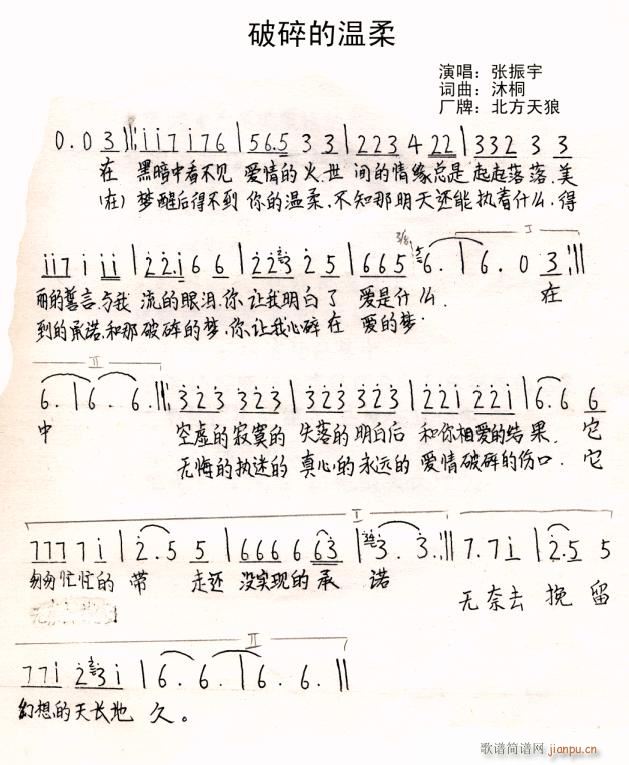 破碎的温柔
演唱：张振宇
词曲：沐桐
厂牌：北方天狼
0.03||:i i 7 i 7 6|5 6.5 3 3|2 2 3 4 2 2|3 3 2 3 3
在 黑暗中看不见 爱情的火.世 间的情缘总是 起起落落.美
(在) 梦醒后得不到 你的温柔.不知那明天还能执着什么.得
i i 7 i i i|2 2. i 6 6|2 2 3 2 5|6 6 5 6.|6. 0 3:||
I
丽的誓言.与我 流的眼泪.你.让我明白了 爱是什么. 在
到的承诺.和那破碎的梦.你.让我心碎在 爱的梦.
II
6.|6. 6.||:3 2 3 3 2 3|3 2 3 3 2 3|2 2 i 2 2 i|6. 6 6
中 空虚的寂寞的 失落的明白后 和你相爱的结果. 它
无悔的执迷的 真心的永远的 爱情破碎的伤口. 它
I
7 7 7 7 i|2. 5 5|6 6 6 6 6 3|3. 3.:||7. 7 i|2. 5 5
匆匆忙忙的 带 走还 没实现的承 诺
无奈去 挽 留
II
7 7 i 2 3 i|6. 6.|6. 6.||
幻想的天长地 久。
歌谱简谱网 jianpu.cn